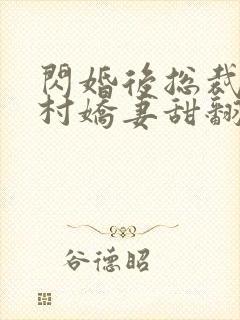 閃婚後総裁
村嬌妻甜翻
谷德昭